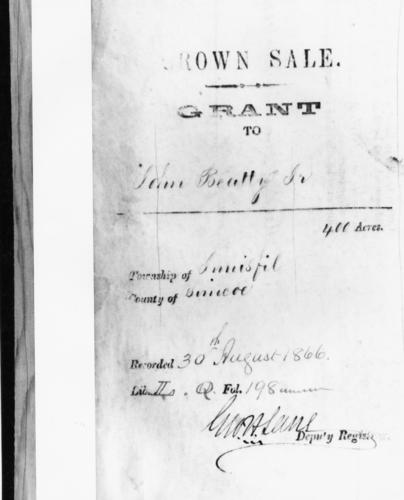 CROWN SALE.
GRANT
TO
John Beatty Jr
400 Acres.
Township of Innisfil
County of Simcoe
Recorded 30th August 1866.
Lib. II. Q. Fol. 198
Geo. H. Lane
Deputy Registrar